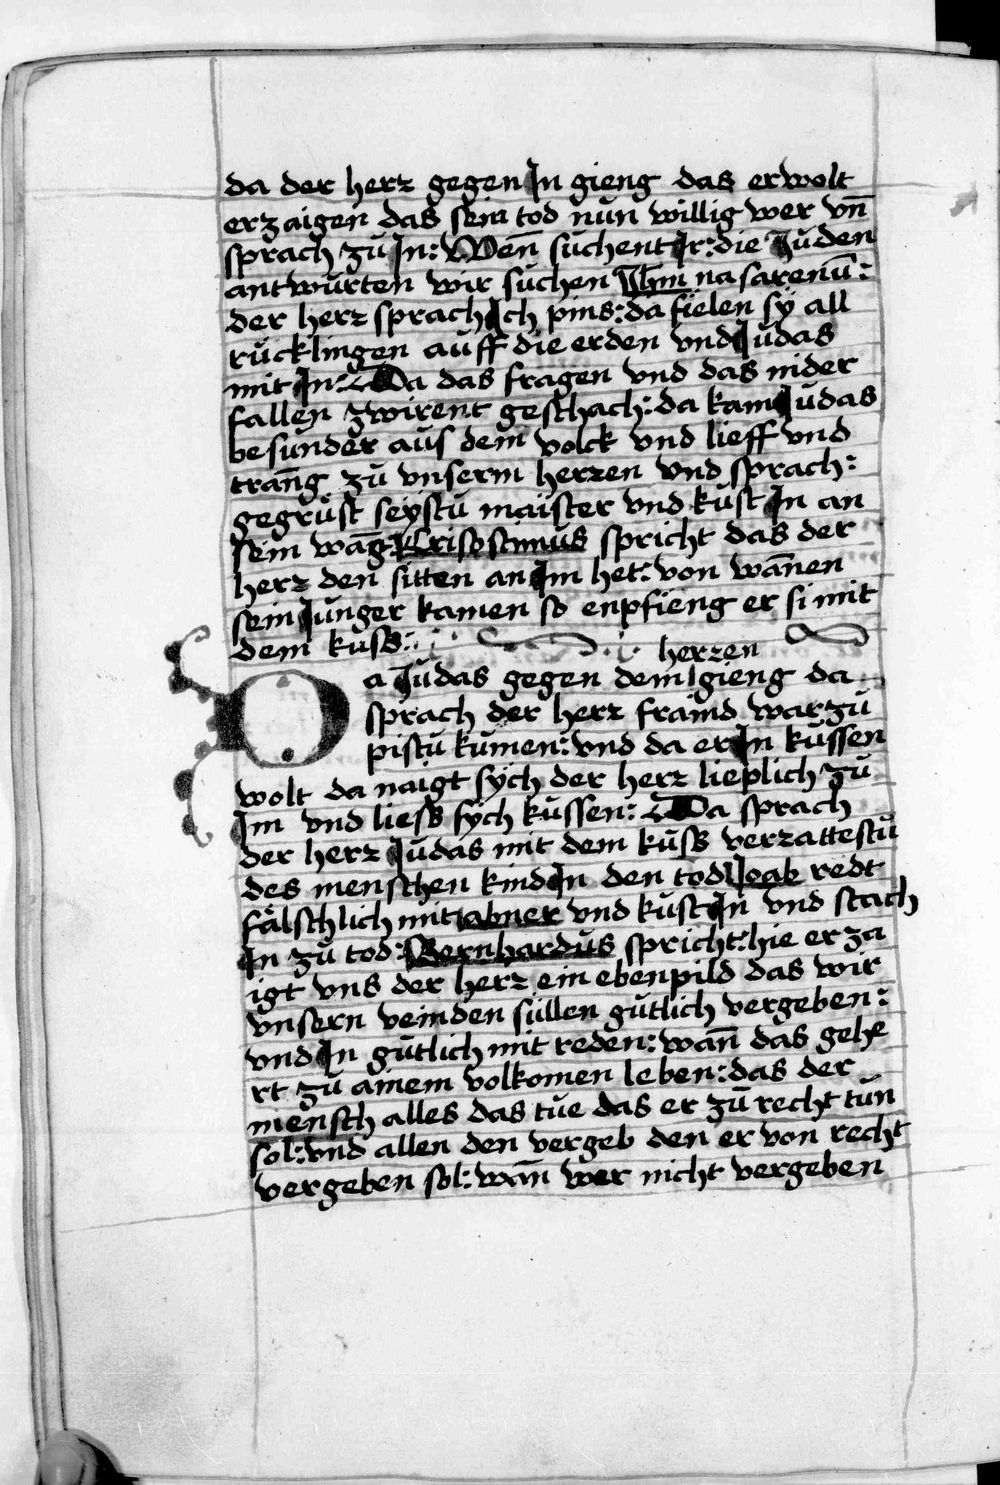 da der herr gegen In gieng das er wolt
erzaigen das sein tod nun willig wer vn̄
sprach zu In: Wen̄ suchent Ir: die Juden
antwurten wir suchen Jhm̄ nasarenū:
der herr sprach Ich pins: da fielen sÿ all
rucklingen auff die erden vnd Judas
mit In: Da das fragen vnd das nider
fallen zwirent geschach: da kam Judas
besunder aus dem volck vnd lieff vnd
tran̄g zu vnserm herren vnd sprach:
gegrüst seystu maister vnd kust In an
sein wāg: Krisostimus spricht das der
herr den sitten an Im het: von wan̄en
sein Junger kamen so enpfieng er si mit
dem kuss:
herren
Da Judas gegen dem gieng da
sprach der herr fraind warzu
pistu kumen: vnd da er In kussen
wolt da naigt sÿch der herr lieplich zu
Im vnd liess sÿch kussen: Da sprach
der herr Judas mit dem kuss verrattestu
des menschen kind In den tod Joab redt
fälschlich mit abner vnd kust In vnd stach
In zu tod: Bernhardus spricht: hie erza
igt vns der herr ein ebenpild das wir
vnsern veinden süllen gütlich vergeben:
vnd In gütlich mit reden: wan̄ das gehe
rt zu ainem volkomen leben: das der
mensch alles das tue das er zu recht tun
sol: vnd allen den vergeb den er von recht
vergeben sol: wan̄ wer nicht vergeben